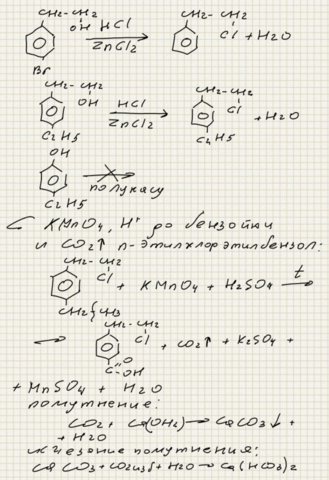 CH2-CH2
OH HCl
ZnCl2
Br
CH2-CH2
Cl + H2O
CH2-CH2
OH
HCl
ZnCl2
C2H5
CH2-CH2
Cl
+ H2O
OH
C2H5
по лукасу
С KMnO4, H+ до бензойки
и CO2↑ п-этилхлорэтилбензол:
CH2-CH2
Cl + KMnO4 + H2SO4 t→
CH2{CH3
CH2-CH2
→ Cl + CO2↑ + K2SO4 +
C=O
OH
+ MnSO4 + H2O
помутнение:
CO2 + Ca(OH2) → CaCO3↓ +
+ H2O
исчезание помутнения:
CaCO3 + CO2изб + H2O → Ca(HCO3)2